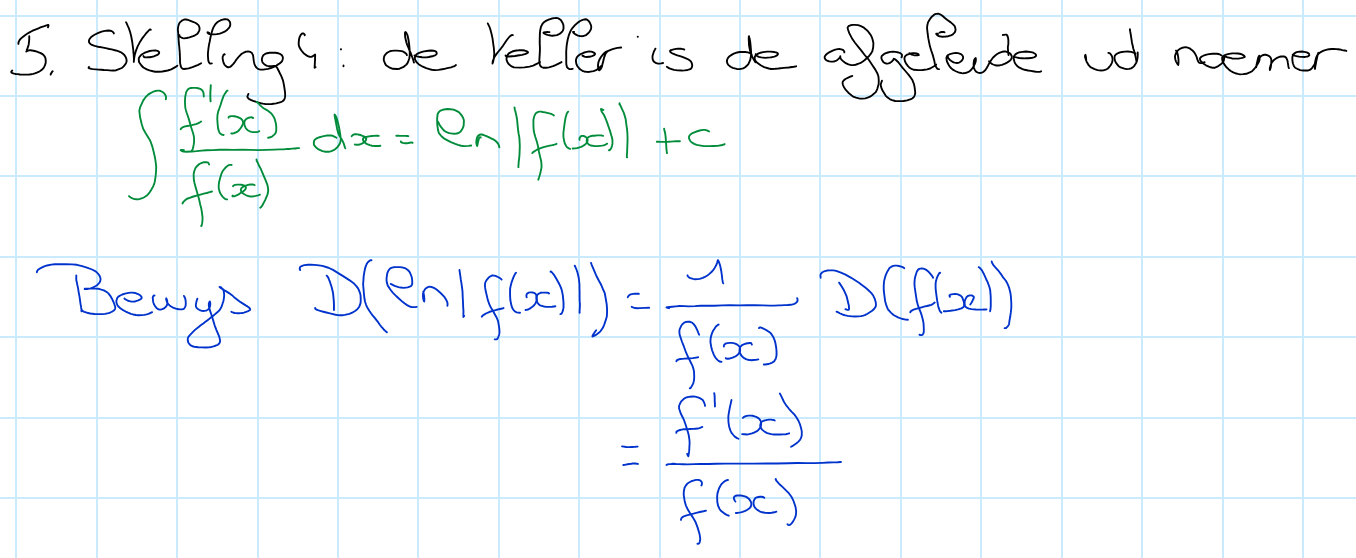 5. Stelling 4: de teller is de afgeleide vd noemer
∫ f'(x)/f(x) dx = ln|f(x)| + c
Bewijs D(ln|f(x)|) = 1/f(x) D(f(x))
= f'(x)/f(x)